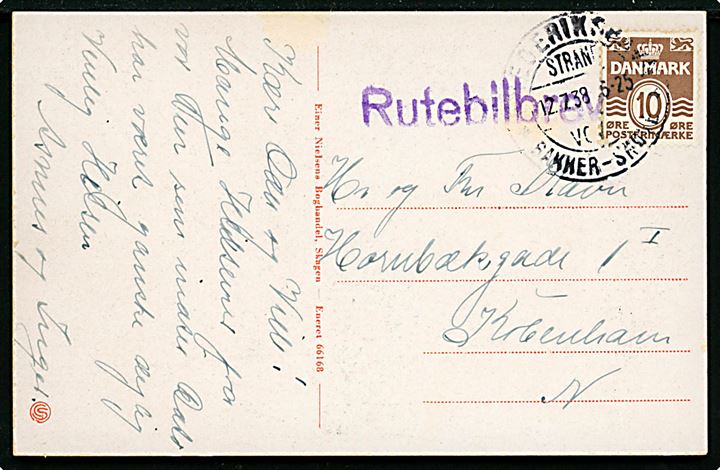 Kære Oda og Ville!
Mange Hilsener fra
vor Tur som indtil Dato
har været ganske dejlig
Venlig Hilsen
Agnes og Inger.
Einer Nielsens Boghandel, Skagen Eneret 66168
Rutebilbrev
FREDERIKSH
STRAND
12.7.38 6-25
BAKKER-SKAGEN
DANMARK
10
ØRE ØRE
POSTFRIMÆRKE
Hr. og Fru Ravn
Hornbæksgade 1 I
København
N